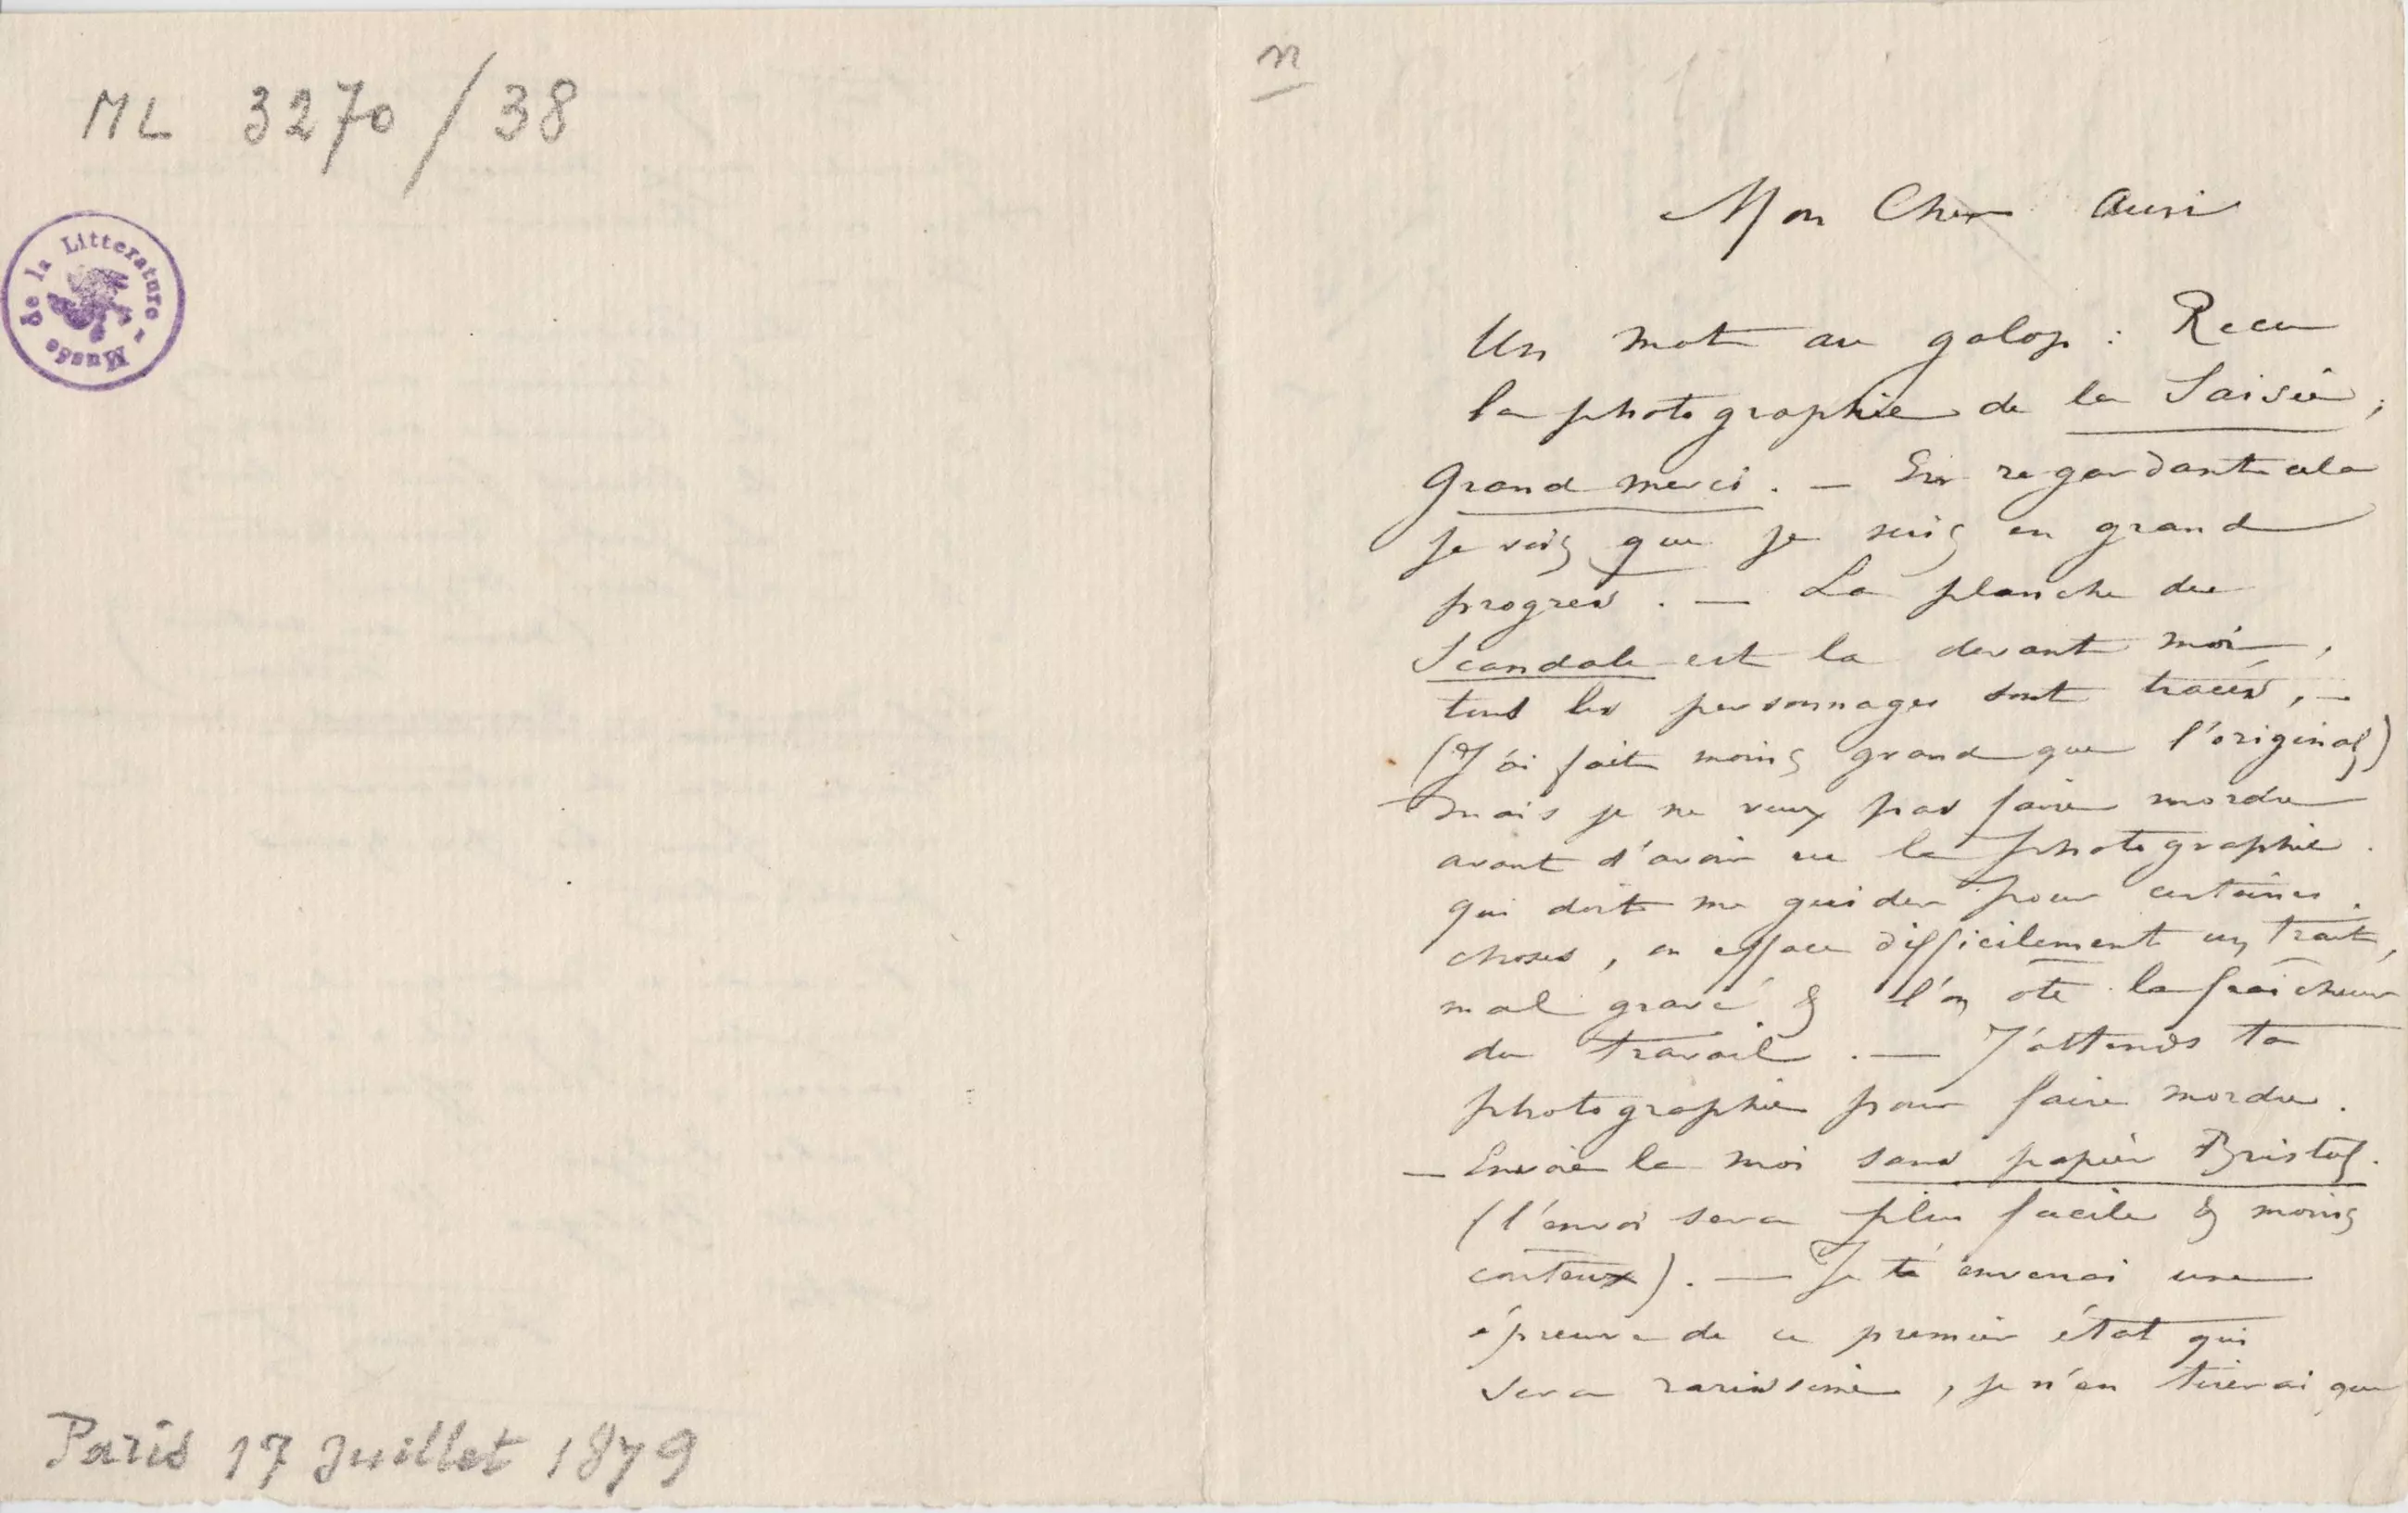 ML 3270/38
Musée de la Littérature -
Paris 17 Juillet 1879
n
Mon Cher Auri
Un mot au galop : Recu
la photographie de la Saisie ;
Grand merci . — En regardant cela
je vois que je suis en grand
progres . — La planche du
Scandale est la devant moi ,
tous les personnages sont tracés , —
(J'ai fait moins grand que l'original)
mais je ne veux pas faire mordre
avant d'avoir eu la photographie .
qui doit me guider pour certaines
choses , on efface difficilement un trait ,
mal gravé & l'on ote la fraicheur
du travail . — J'attends ta
photographie pour faire mordre .
— Envoie la moi sans papier Bristol .
(l'envoi sera plus facile & moins
couteux) . — Je t'enverrai une
épreuve de ce premier état qui
sera rarissime , je n'en tirerai que